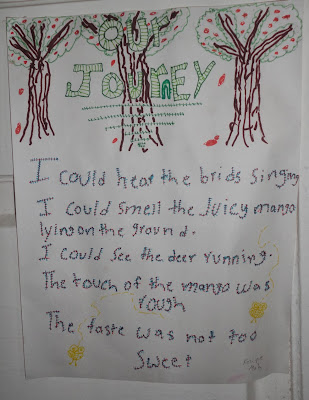 Our
Journey
I could hear the brids singing
I could smell the Juicy mango
lying on the ground.
I could see the deer running.
The touch of the mango was
rough
The taste was not too
sweet